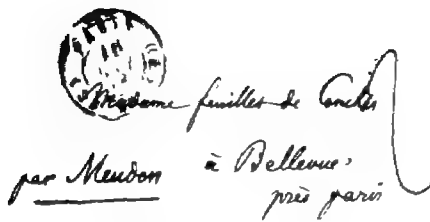 Madame feuillet de Conches
par Meudon à Bellevue
près paris